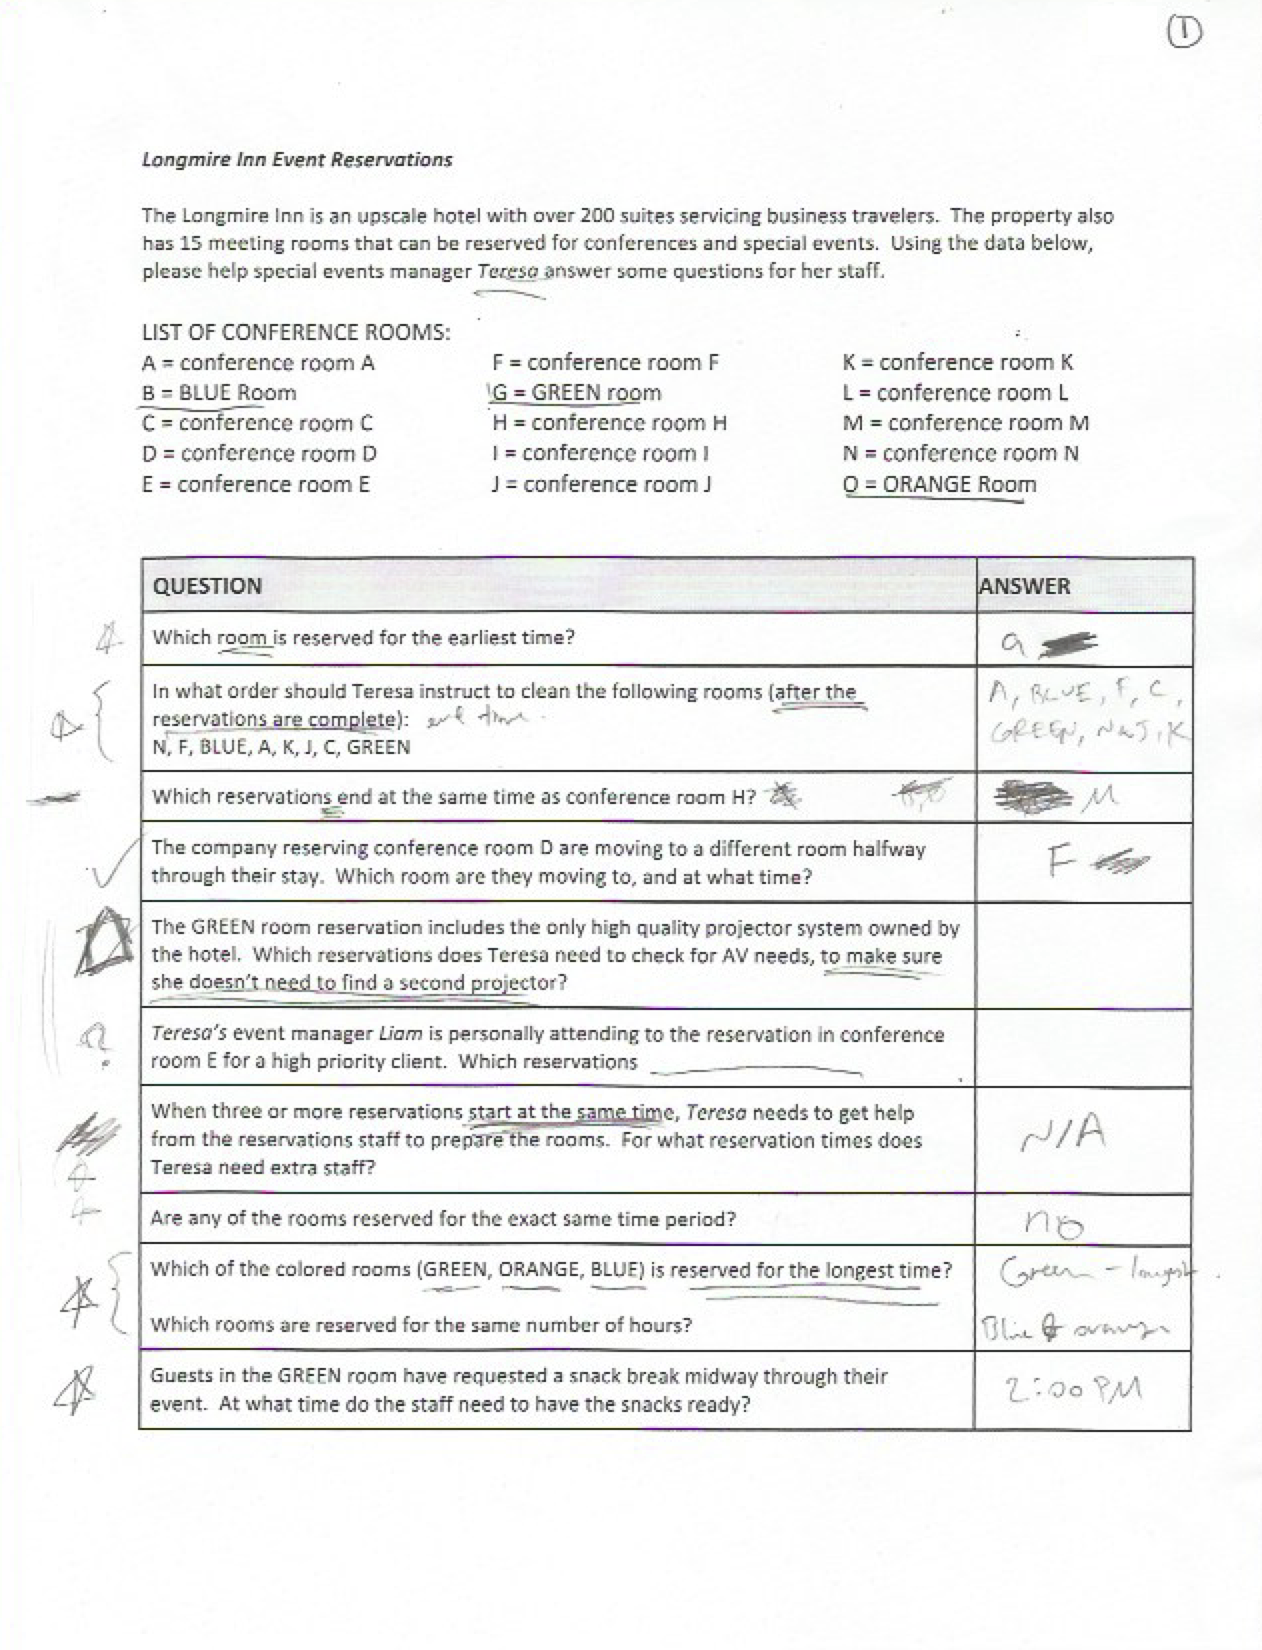 1
Longmire Inn Event Reservations
The Longmire Inn is an upscale hotel with over 200 suites servicing business travelers. The property also
has 15 meeting rooms that can be reserved for conferences and special events. Using the data below,
please help special events manager Teresa answer some questions for her staff.
LIST OF CONFERENCE ROOMS:
A = conference room A F = conference room F K = conference room K
B = BLUE Room G = GREEN room L = conference room L
C = conference room C H = conference room H M = conference room M
D = conference room D I = conference room I N = conference room N
E = conference room E J = conference room J O = ORANGE Room
QUESTION ANSWER
Which room is reserved for the earliest time? a
In what order should Teresa instruct to clean the following rooms (after the
reservations are complete): end time
N, F, BLUE, A, K, J, C, GREEN
A, BLUE, F, C,
GREEN, N&J, K
Which reservations end at the same time as conference room H? M
The company reserving conference room D are moving to a different room halfway
through their stay. Which room are they moving to, and at what time?
F
The GREEN room reservation includes the only high quality projector system owned by
the hotel. Which reservations does Teresa need to check for AV needs, to make sure
she doesn't need to find a second projector?
?
Teresa's event manager Liam is personally attending to the reservation in conference
room E for a high priority client. Which reservations
When three or more reservations start at the same time, Teresa needs to get help
from the reservations staff to prepare the rooms. For what reservation times does
Teresa need extra staff?
N/A
Are any of the rooms reserved for the exact same time period? no
Which of the colored rooms (GREEN, ORANGE, BLUE) is reserved for the longest time? Green - longest
Which rooms are reserved for the same number of hours? Blue & orange
Guests in the GREEN room have requested a snack break midway through their
event. At what time do the staff need to have the snacks ready?
2:00 PM